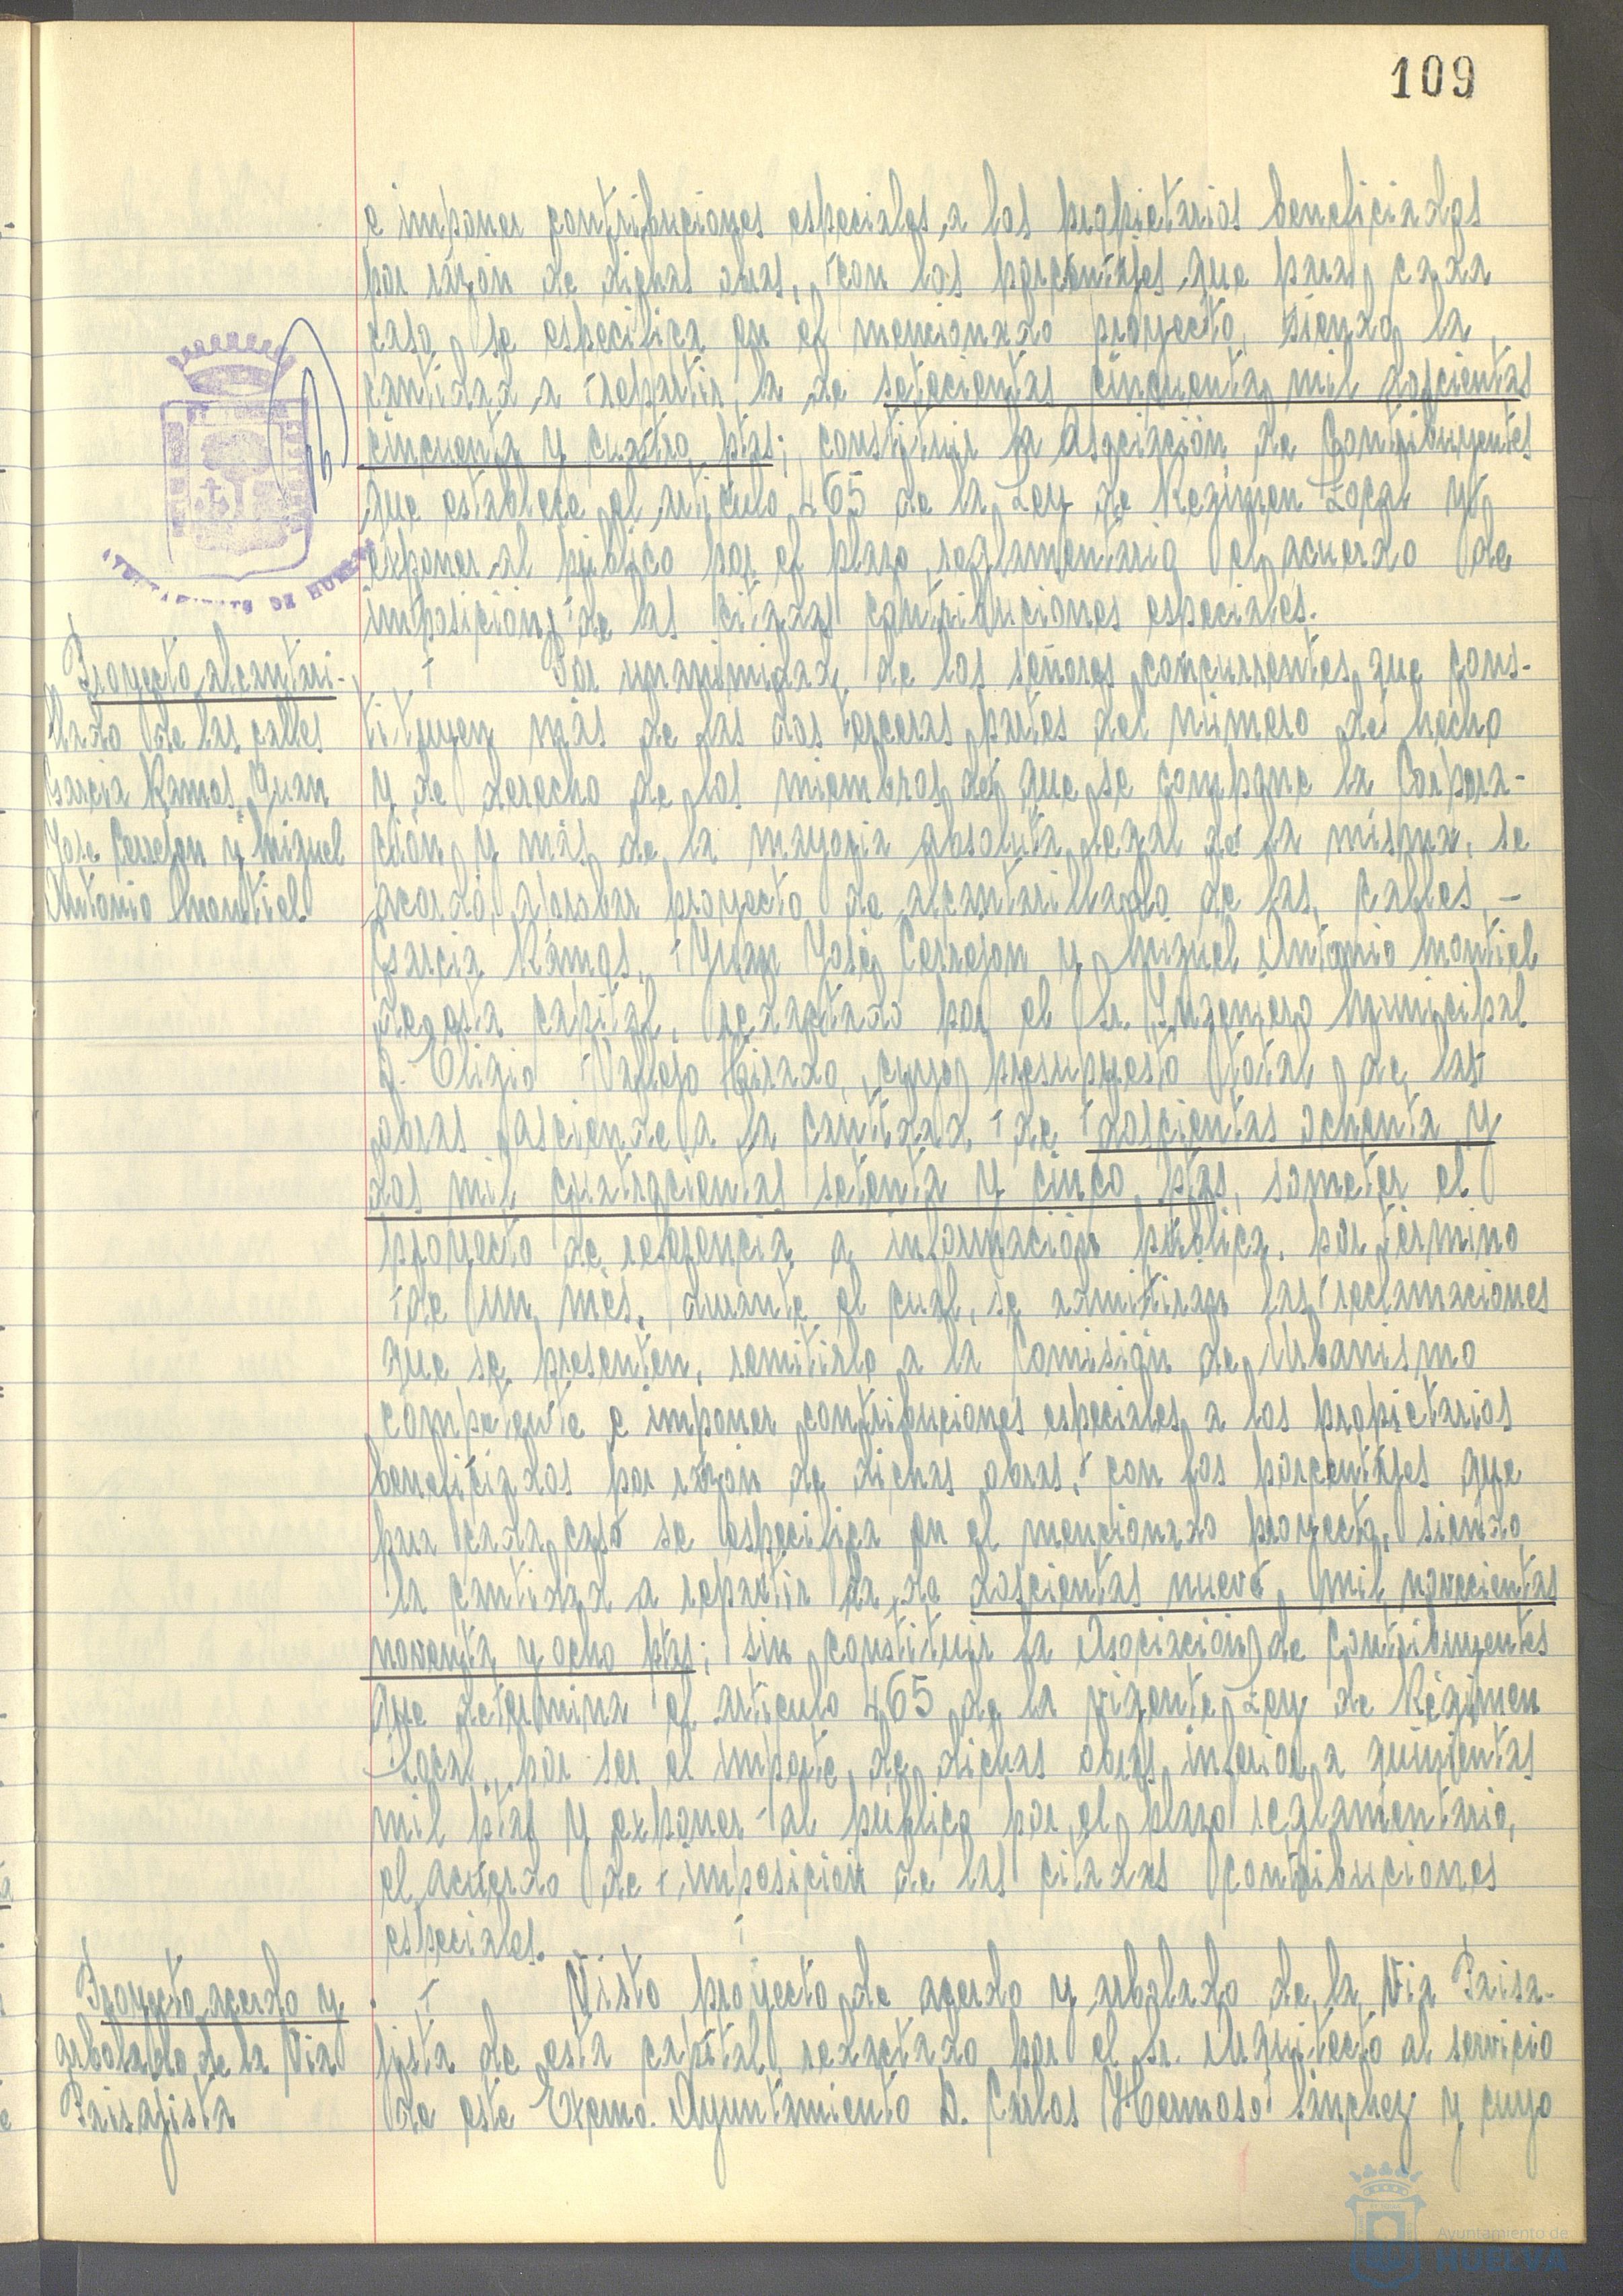 109
e imponer contribuciones especiales, a los propietarios beneficiados
por razón de dichas obras, con los porcentajes que para cada
caso, se especifica en el mencionado proyecto, siendo la
cantidad a repartir, la de setecientas cincuenta mil doscientas
cincuenta y cuatro ptas; constituir la Asociación de Contribuyentes
que establece el artículo 465 de la Ley de Regimen Local y
exponer al público por el plazo reglamentario el acuerdo de
imposición de las citadas contribuciones especiales.
AYUNTAMIENTO DE HUELVA
Proyecto alcantari-
llado de las calles
Garcia Ramos, Juan
Jose Cerrejon y Miguel
Antonio Montiel
Por unanimidad de los señores concurrentes que cons-
tituyen más de las dos terceras partes del número de hecho
y de derecho de los miembros de que se compone la Corpora-
ción y más de la mayoria absoluta legal de la misma, se
acordó aprobar proyecto de alcantarillado de las calles, -
Garcia Ramos, Juan José Cerrejon y Miguel Antonio Montiel
de esta capital, redactado por el Sr. Ingeniero Municipal
D. Eligio Vallejo Tirado, cuyo presupuesto total de las
obras asciende a la cantidad de doscientas ochenta y
dos mil cuatrocientas setenta y cinco ptas, someter el
proyecto de referencia a información pública, por término
de un mes, durante el cual, se admitiran las reclamaciones
que se presenten, remitirlo a la Comisión de Urbanismo
competente e imponer contribuciones especiales a los propietarios
beneficiados por razón de dichas obras, con los porcentajes que
para cada caso se especifica en el mencionado proyecto, siendo
la cantidad a repartir la de doscientas nueve mil novecientas
noventa y ocho ptas; sin constituir la Asociación de Contribuyentes
que determina el artículo 465 de la vigente Ley de Régimen
Local, por ser el importe de dichas obras inferior a quinientas
mil ptas y exponer al público por el plazo reglamentario,
el acuerdo de imposición de las citadas contribuciones
especiales.
Proyecto acerdo y
arbolado de la Via
Paisajista
Visto proyecto de acerdo y arbolado de la Via Paisa-
jista de esta capital, redactado por el Sr. Arquitecto al servicio
de este Excmo. Ayuntamiento D. Carlos Hermoso Sanchez y cuyo
Ayuntamiento de
HUELVA